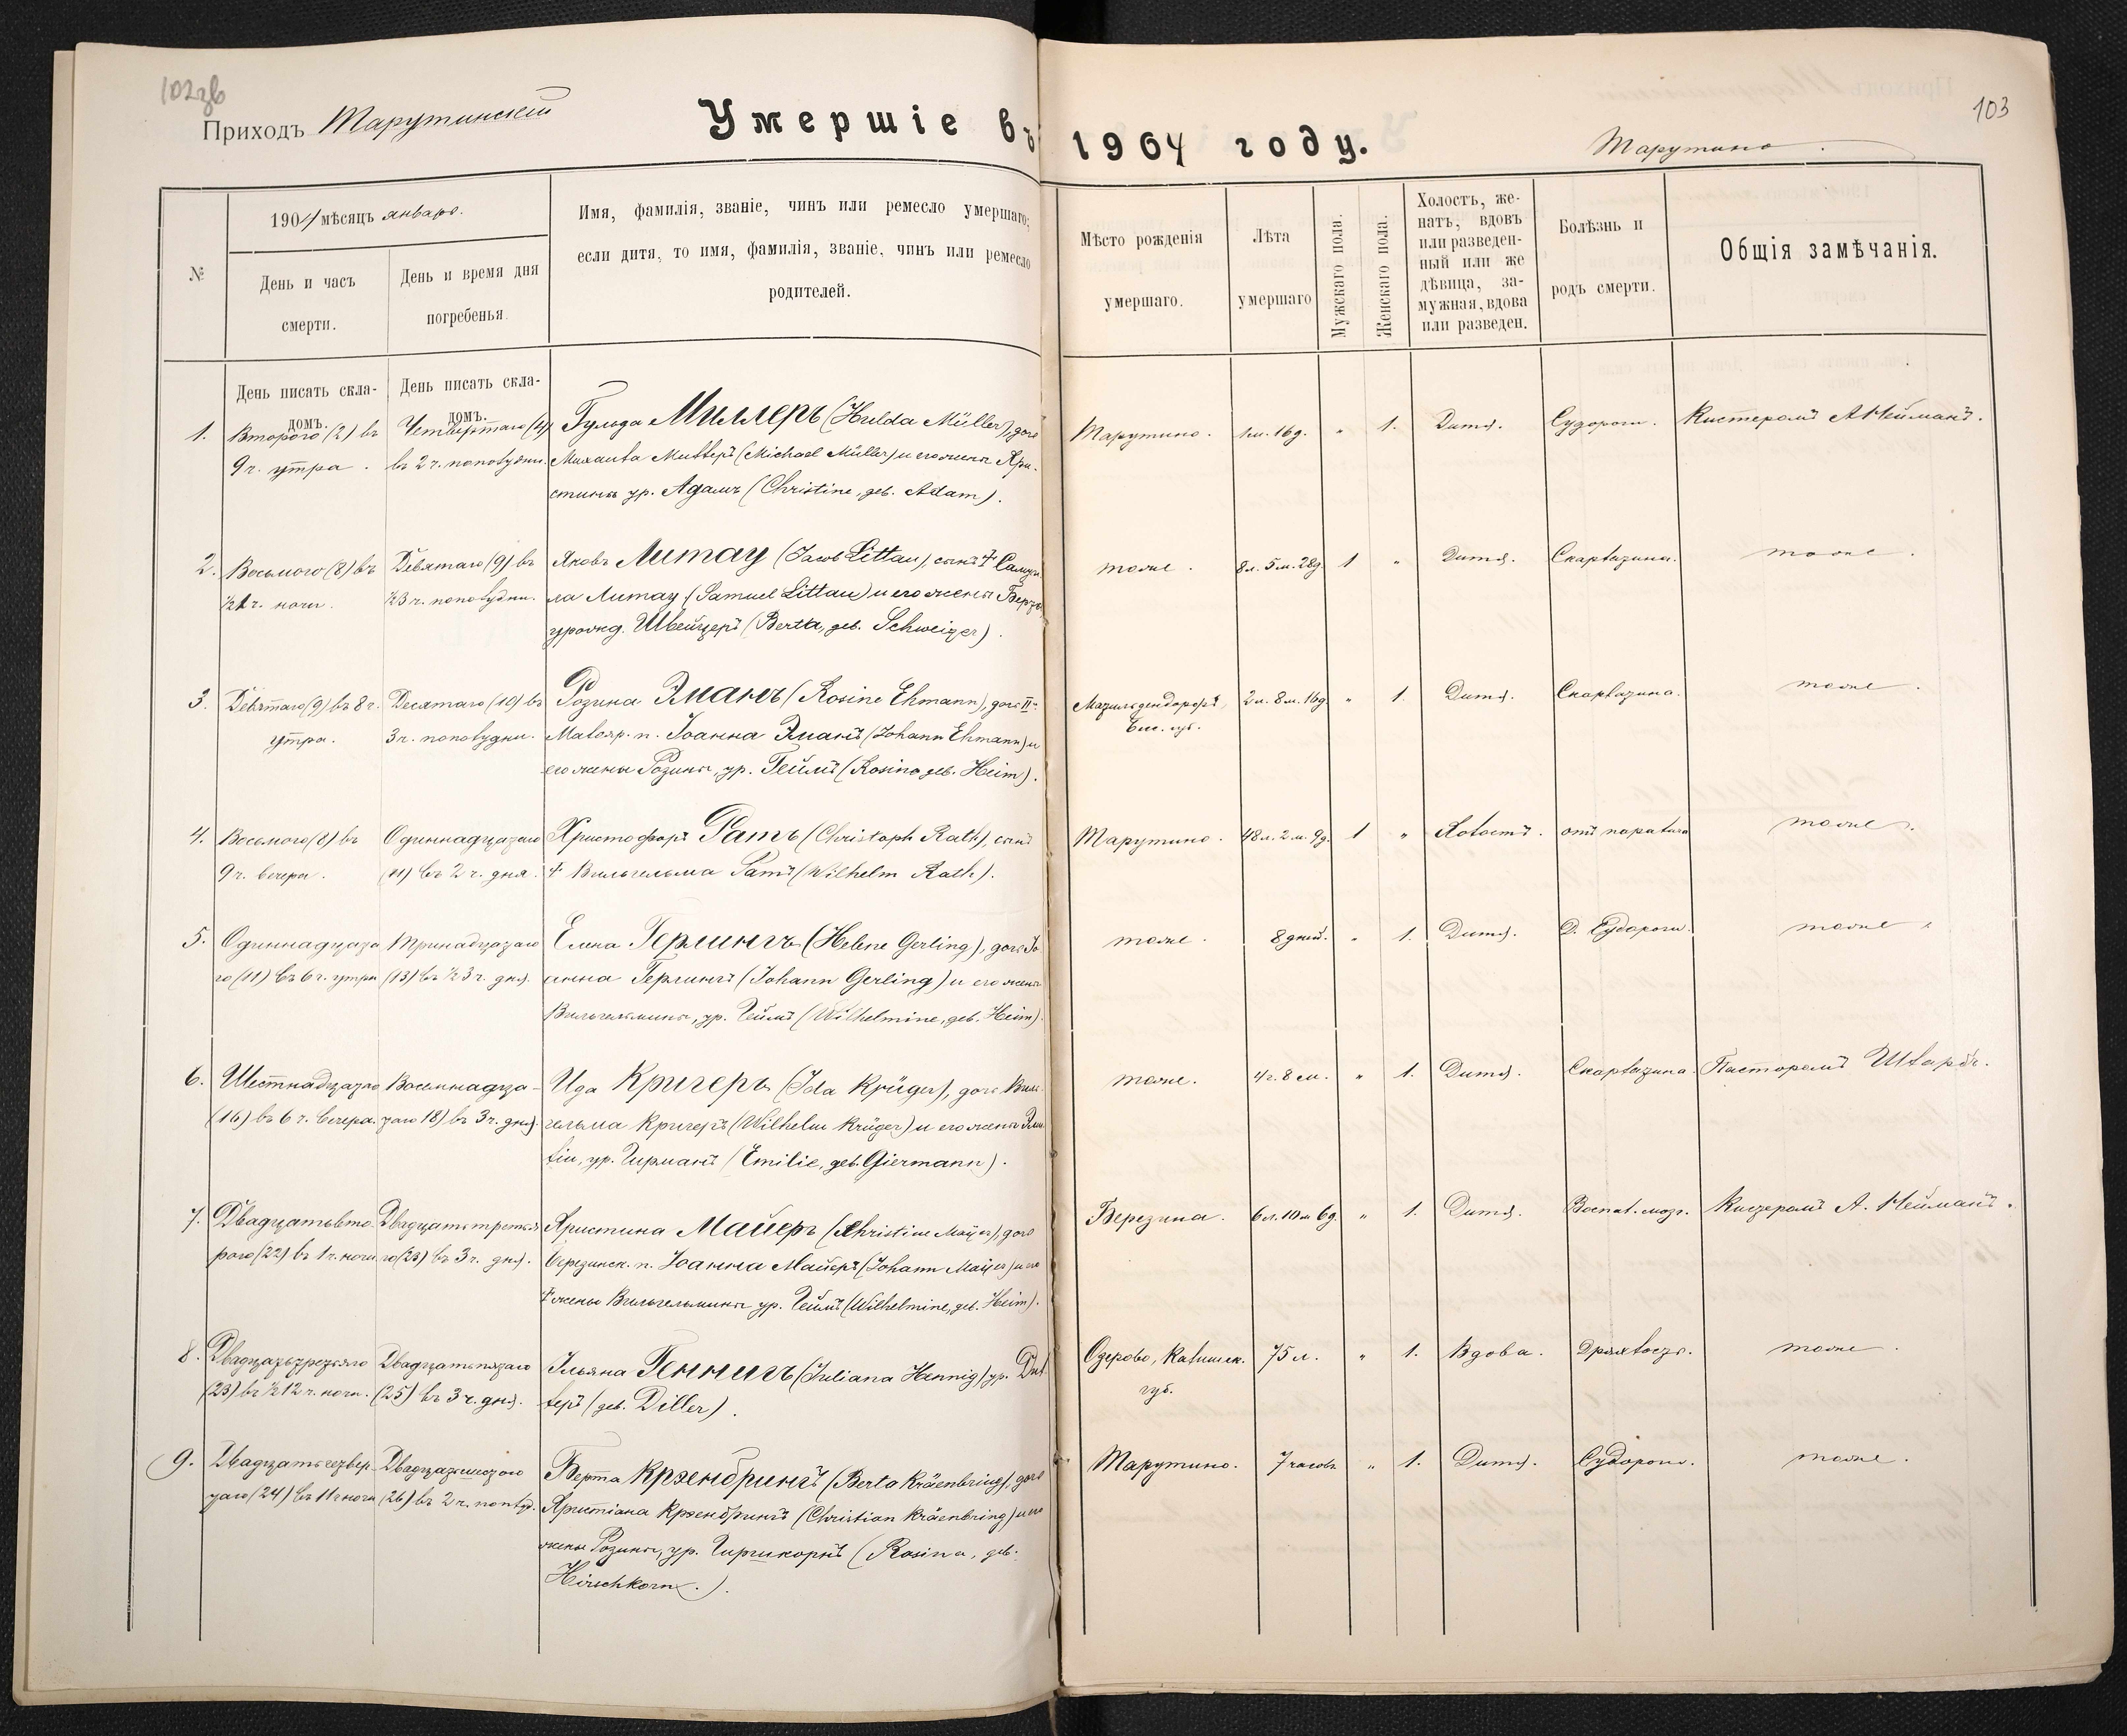 102зв
Приходъ Тарутинскій
Умершіе въ
190 4 мѣсяцъ январь.
№
День и часъ
смерти.
День и время дня
погребенья.
Имя, фамилія, званіе, чинъ или ремесло умершаго;
если дитя, то имя, фамилія, званіе, чинъ или ремесло
родителей.
День писать скла-
домъ.
День писать скла-
домъ.
1.
Второго (2) въ
9 ч. утра.
Четвертаго (4)
въ 2 ч. пополудни.
Гульда Миллеръ (Hulda Müller), дочь
Михаила Миллеръ (Michael Müller) и его жены Хри-
стины ур. Адамъ (Christine, geb. Adam).
2.
Восьмого (8) въ
½1 ч. ночи.
Девятаго (9) въ
½3 ч. пополудни.
Яковъ Литау (Jacob Littau), сынъ † Самуи-
ла Литау (Samuel Littau) и его жены Берты,
урожд. Швейцеръ (Berta, geb. Schweizer).
3.
Девятаго (9) въ 8 ч.
утра.
Десятаго (10) въ
3 ч. пополудни.
Розина Эманъ (Rosine Ehmann), дочь II-
Малояр. п. Іоанна Эманъ (Johann Ehmann) и
его жены Розины, ур. Геймъ (Rosina geb. Heim).
4.
Восьмого (8) въ
9 ч. вечера.
Одиннадцатаго
(11) въ 2 ч. дня.
Христофоръ Ратъ (Christoph Rath), сынъ
† Вильгельма Ратъ (Wilhelm Rath).
5.
Одиннадцата
го (11) въ 6 ч. утра
Тринадцатаго
(13) въ ½3 ч. дня.
Елена Герлингъ (Helene Gerling), дочь Іо-
анна Герлингъ (Johann Gerling) и его жены
Вильгельмины, ур. Геймъ (Wilhelmine, geb. Heim).
6.
Шестнадцатаго
(16) въ 6 ч. вечера.
Восемнадца-
таго 18) въ 3 ч. дня.
Ида Кригеръ (Ida Krüger), дочь Виль-
гельма Кригеръ (Wilhelm Krüger) и его жены Эми-
ліи, ур. Гирманъ (Emilie, geb. Giermann).
7.
Двадцатьвто-
рого (22) въ 1 ч. ночи
Двадцатьтретья
го (23) въ 3 ч. дня.
Христина Майеръ (Christine Mayer), дочь
Березинск. п. Іоанна Майеръ (Johann Mayer) и его
† жены Вильгельмины ур. Геймъ (Wilhelmine, geb. Heim).
8.
Двадцатьтретьяго
(23) въ ½12 ч. ночи.
Двадцатьпятаго
(25) въ 3 ч. дня.
Юльяна Геннигъ (Juliana Hennig) ур. Дил
леръ (geb. Diller).
9.
Двадцатьчетвер-
таго (24) въ 11 ч ночи
Двадцатьшестого
(26) въ 2 ч. поплуд.
Берта Крэенбрингъ (Berta Kräenbring), дочь
Христіана Крэенбрингъ (Christian Kräenbring) и его
жены Розины, ур. Гиршкорнъ (Rosina, geb.
Hirschkorn.).
103
1904 году.
Тарутино.
Мѣсто рожденія
умершаго.
Лѣта
умершаго
Мужскаго пола.
Женскаго пола.
Холостъ, же-
натъ, вдовъ
или разведен-
ный или же
дѣвица, за-
мужная, вдова
или разведен.
Болѣзнь и
родъ смерти.
Общія замѣчанія.
Тарутино. 1 м. 16 д. " 1. Дитя. Судороги. Кистеромъ А Нейманъ.
тоже. 8 л. 5 м. 28 д. 1 " Дитя. Скарлазина. тоже.
Матильдендорфъ, 2 л. 8 м. 16 д. " 1. Дитя. Скарлазина. тоже.
Бес. губ.
Тарутино. 48 л. 2 м. 9 д. 1 " Холостъ. отъ паралича тоже.
тоже. 8 дней. " 1. Дитя. Д. Судороги. тоже.
тоже. 4 г. 8 м. " 1. Дитя. Скарлазина. Пасторомъ Шварцъ.
Березина. 6 л. 10 м 6 д. " 1. Дитя. Воспал. мозг. Кистеромъ А. Нейманъ.
Озерово, Калишск. 75 л. " 1. Вдова. Дряхлость. тоже.
губ.
Тарутино. 7 часовъ " 1. Дитя. Судороги. тоже.